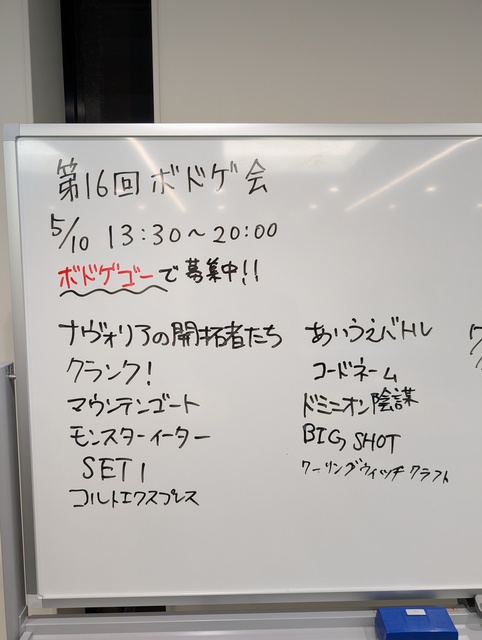 第16回ボドゲ会
5/10 13:30～20:00
ボドゲゴーで募集中!!
ナヴォリアの開拓者たち
クランク!
マウンテンゴート
モンスターイーター
SETI
コルトエクスプレス
あいうえバトル
コードネーム
ドミニオン陰謀
BIG SHOT
ワーリングウィッチクラフト